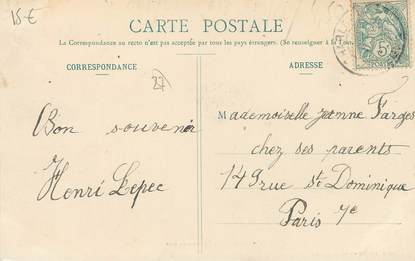 15€
CARTE POSTALE
La Correspondance au recto n'est pas acceptée par tous les pays étrangers. (Se renseigner à la
CORRESPONDANCE
ADRESSE
27
5
Bon souvenir
Henri Lepec
Mademoiselle Jeanne Farges
chez ses parents
149 rue St Dominique
Paris 7e